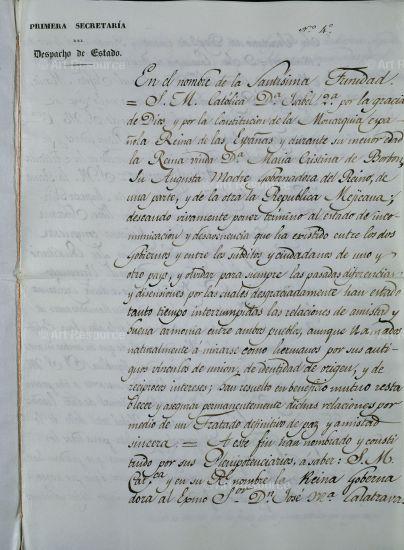 PRIMERA SECRETARÍA
DEL
Despacho de Estado.
Nro. 4º
En el nombre de la Santisima Trinidad
= S. M. Catolica Dª Isabel 2ª por la gracia
de Dios, y por la Constitucion de la Monarquia espa
ñola Reina de las Españas y durante su menor edad
la Reina viuda Dª Maria Cristina de Borbon,
Su Augusta Madre Gobernadora del Reino, de
una parte, y de la otra la Republica Mejicana;
deseando vivamente poner termino al estado de inco-
municacion y desavenencia que ha existido entre los dos
Gobiernos y entre los subditos y ciudadanos de uno y
otro pays, y olvidar para siempre las pasadas diferencias
y disensiones por las cuales desgraciadamente han estado
tanto tiempo interrumpidas las relaciones de amistad y
buena armonia entre ambos pueblos, aunque llamados
naturalmente á mirarse como hermanos por sus anti-
guos vinculos de union, de identidad de origen, y de
reciprocos intereses; han resuelto en beneficio mutuo resta
blecer y asegurar permanentemente dichas relaciones por
medio de un Tratado definitivo de paz y amistad
sincera. = A este fin han nombrado y consti
tuido por sus Plenipotenciarios, a saber: S. M.
Catca y en su Rl nombre la Reina Goberna
dora al Exmo Sor Dn José Mª Calatrava
© Art Resource
© Art Resource
© Art Resource
© Art Resource